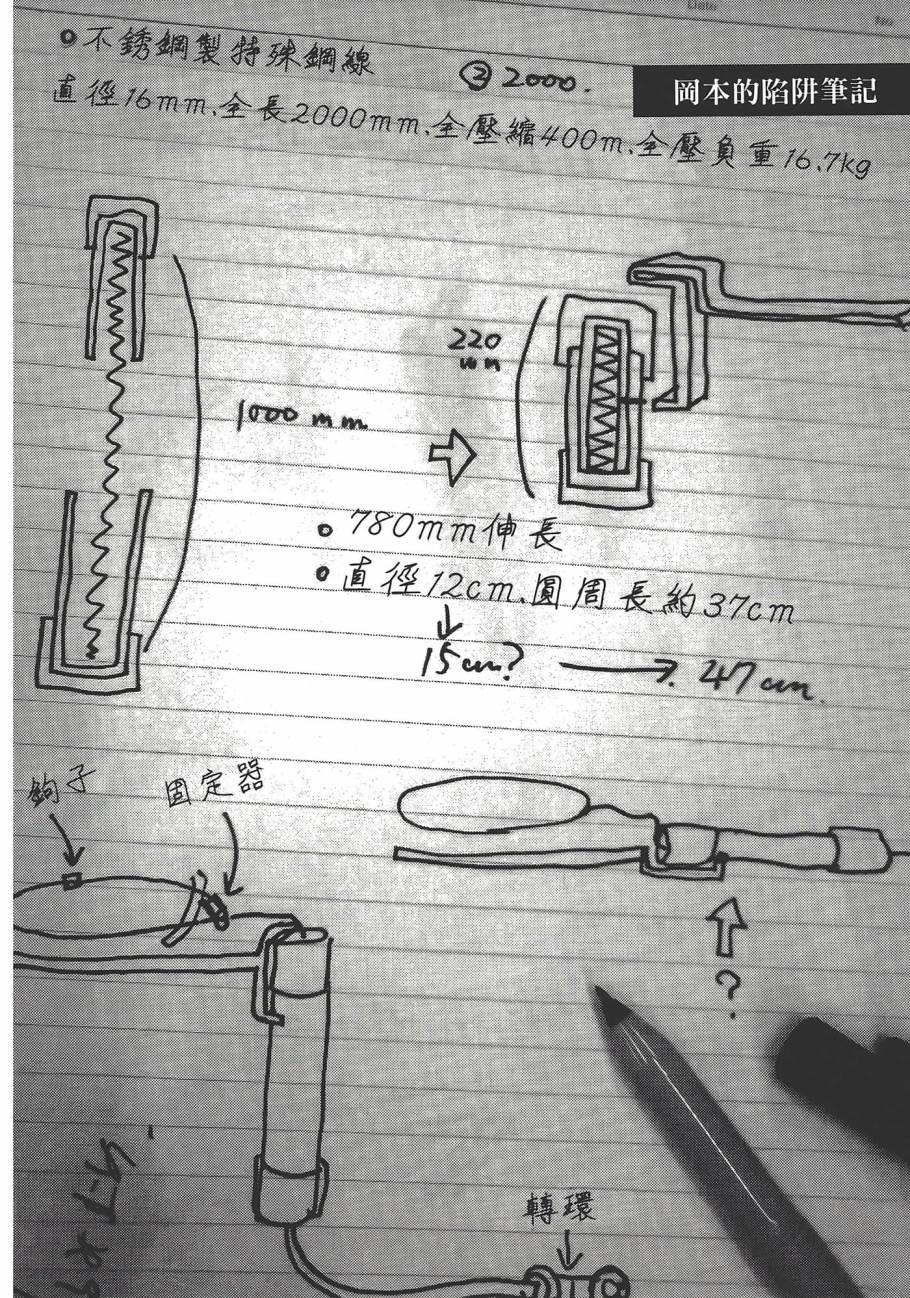 Date
No.
不銹鋼製特殊鋼線
② 2000.
岡本的陷阱筆記
直徑16mm、全長2000mm、全壓縮400m、全壓負重16.7kg
220
mm
1000 mm
780mm伸長
直徑12cm、圓周長約37cm
15cm? → 47cm.
鉤子
固定器
?
轉環